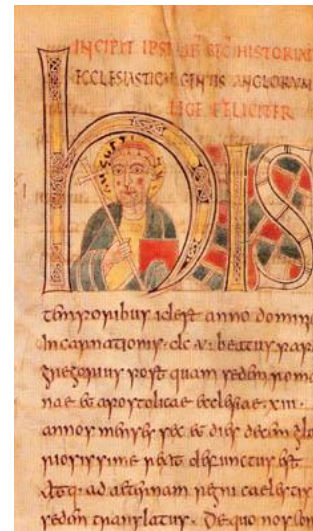 INCIPIT HISTORIA
ECCLESIASTICAE GENTIS ANGLORUM
LEGE FELICITER
HIS
temporibus id est anno domini
incarnationis dc v beatus pap
gregorius post quam sedem roma
nae et apostolicae ecclesiae xiii
annos menses sex et dies decem glo
riosissime rexit defunctus est
atq: ad aeternam regni caelestis
sedem translatus. De quo nos con